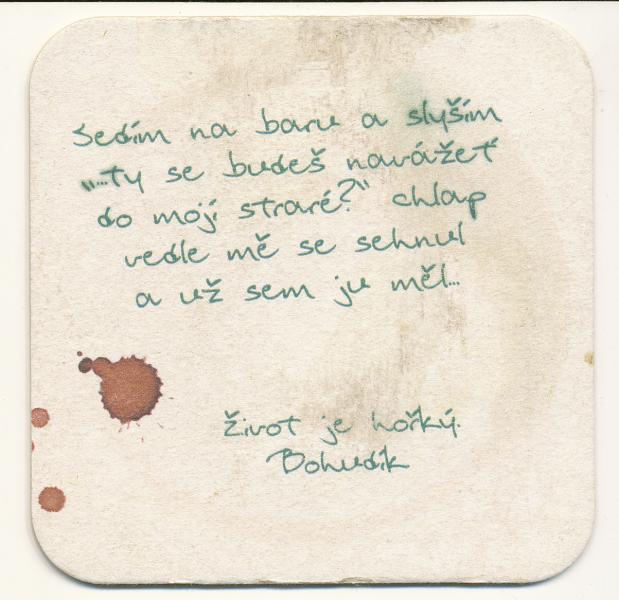 Sedím na baru a slyším
"...ty se budeš navážeť
do moji straré?" chlap
vedle mě se sehnul
a už sem ju měl...
Život je hořký.
Bohudík